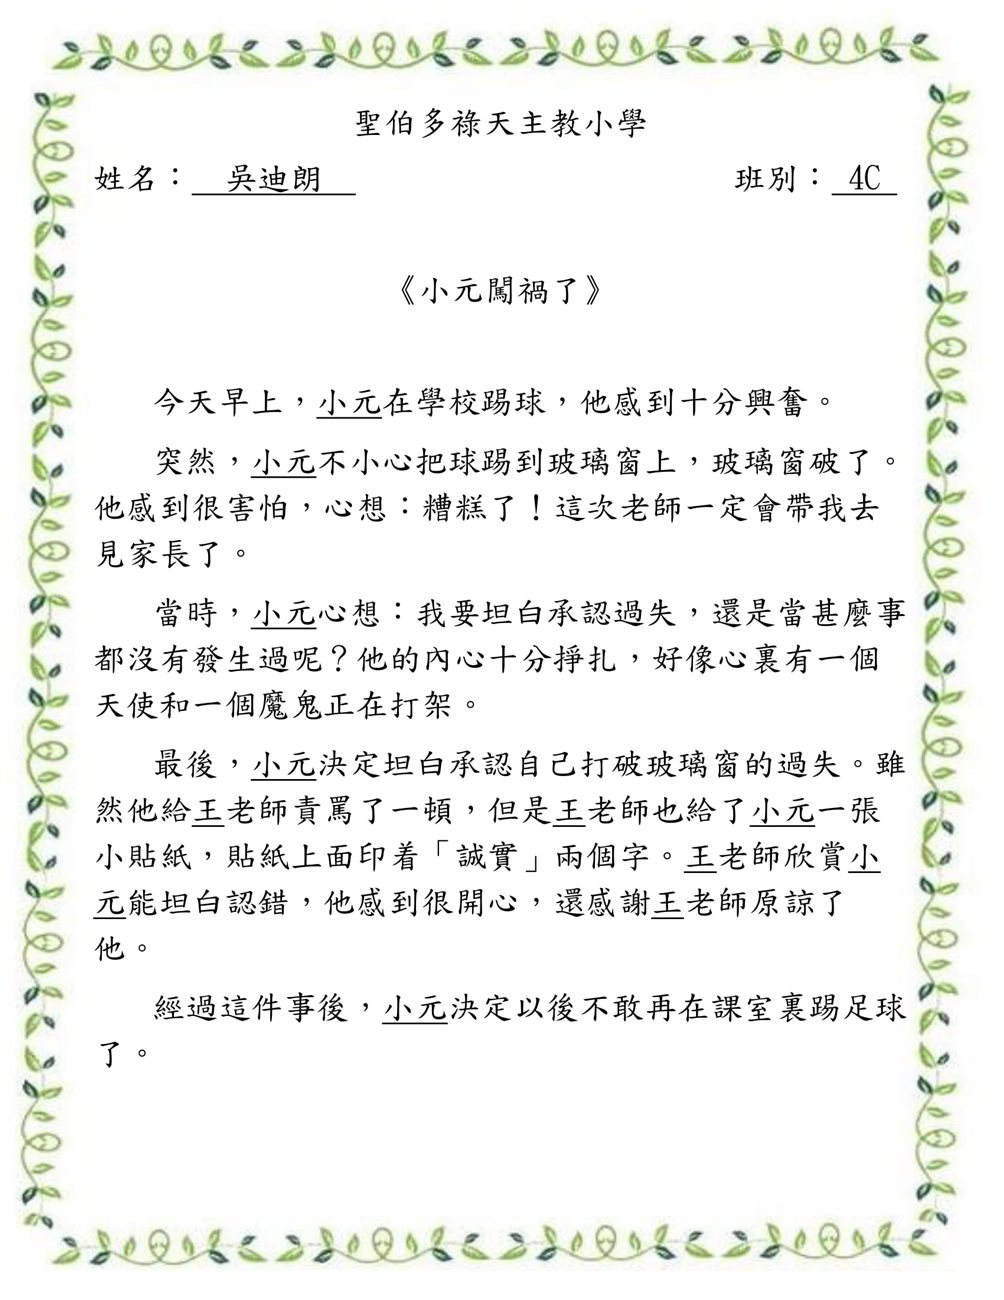 聖伯多祿天主教小學
姓名：吳迪朗 班別：4C
《小元闖禍了》
今天早上，小元在學校踢球，他感到十分興奮。
突然，小元不小心把球踢到玻璃窗上，玻璃窗破了。
他感到很害怕，心想：糟糕了！這次老師一定會帶我去
見家長了。
當時，小元心想：我要坦白承認過失，還是當甚麼事
都沒有發生過呢？他的內心十分掙扎，好像心裏有一個
天使和一個魔鬼正在打架。
最後，小元決定坦白承認自己打破玻璃窗的過失。雖
然他給王老師責罵了一頓，但是王老師也給了小元一張
小貼紙，貼紙上面印着「誠實」兩個字。王老師欣賞小
元能坦白認錯，他感到很開心，還感謝王老師原諒了
他。
經過這件事後，小元決定以後不敢再在課室裏踢足球
了。